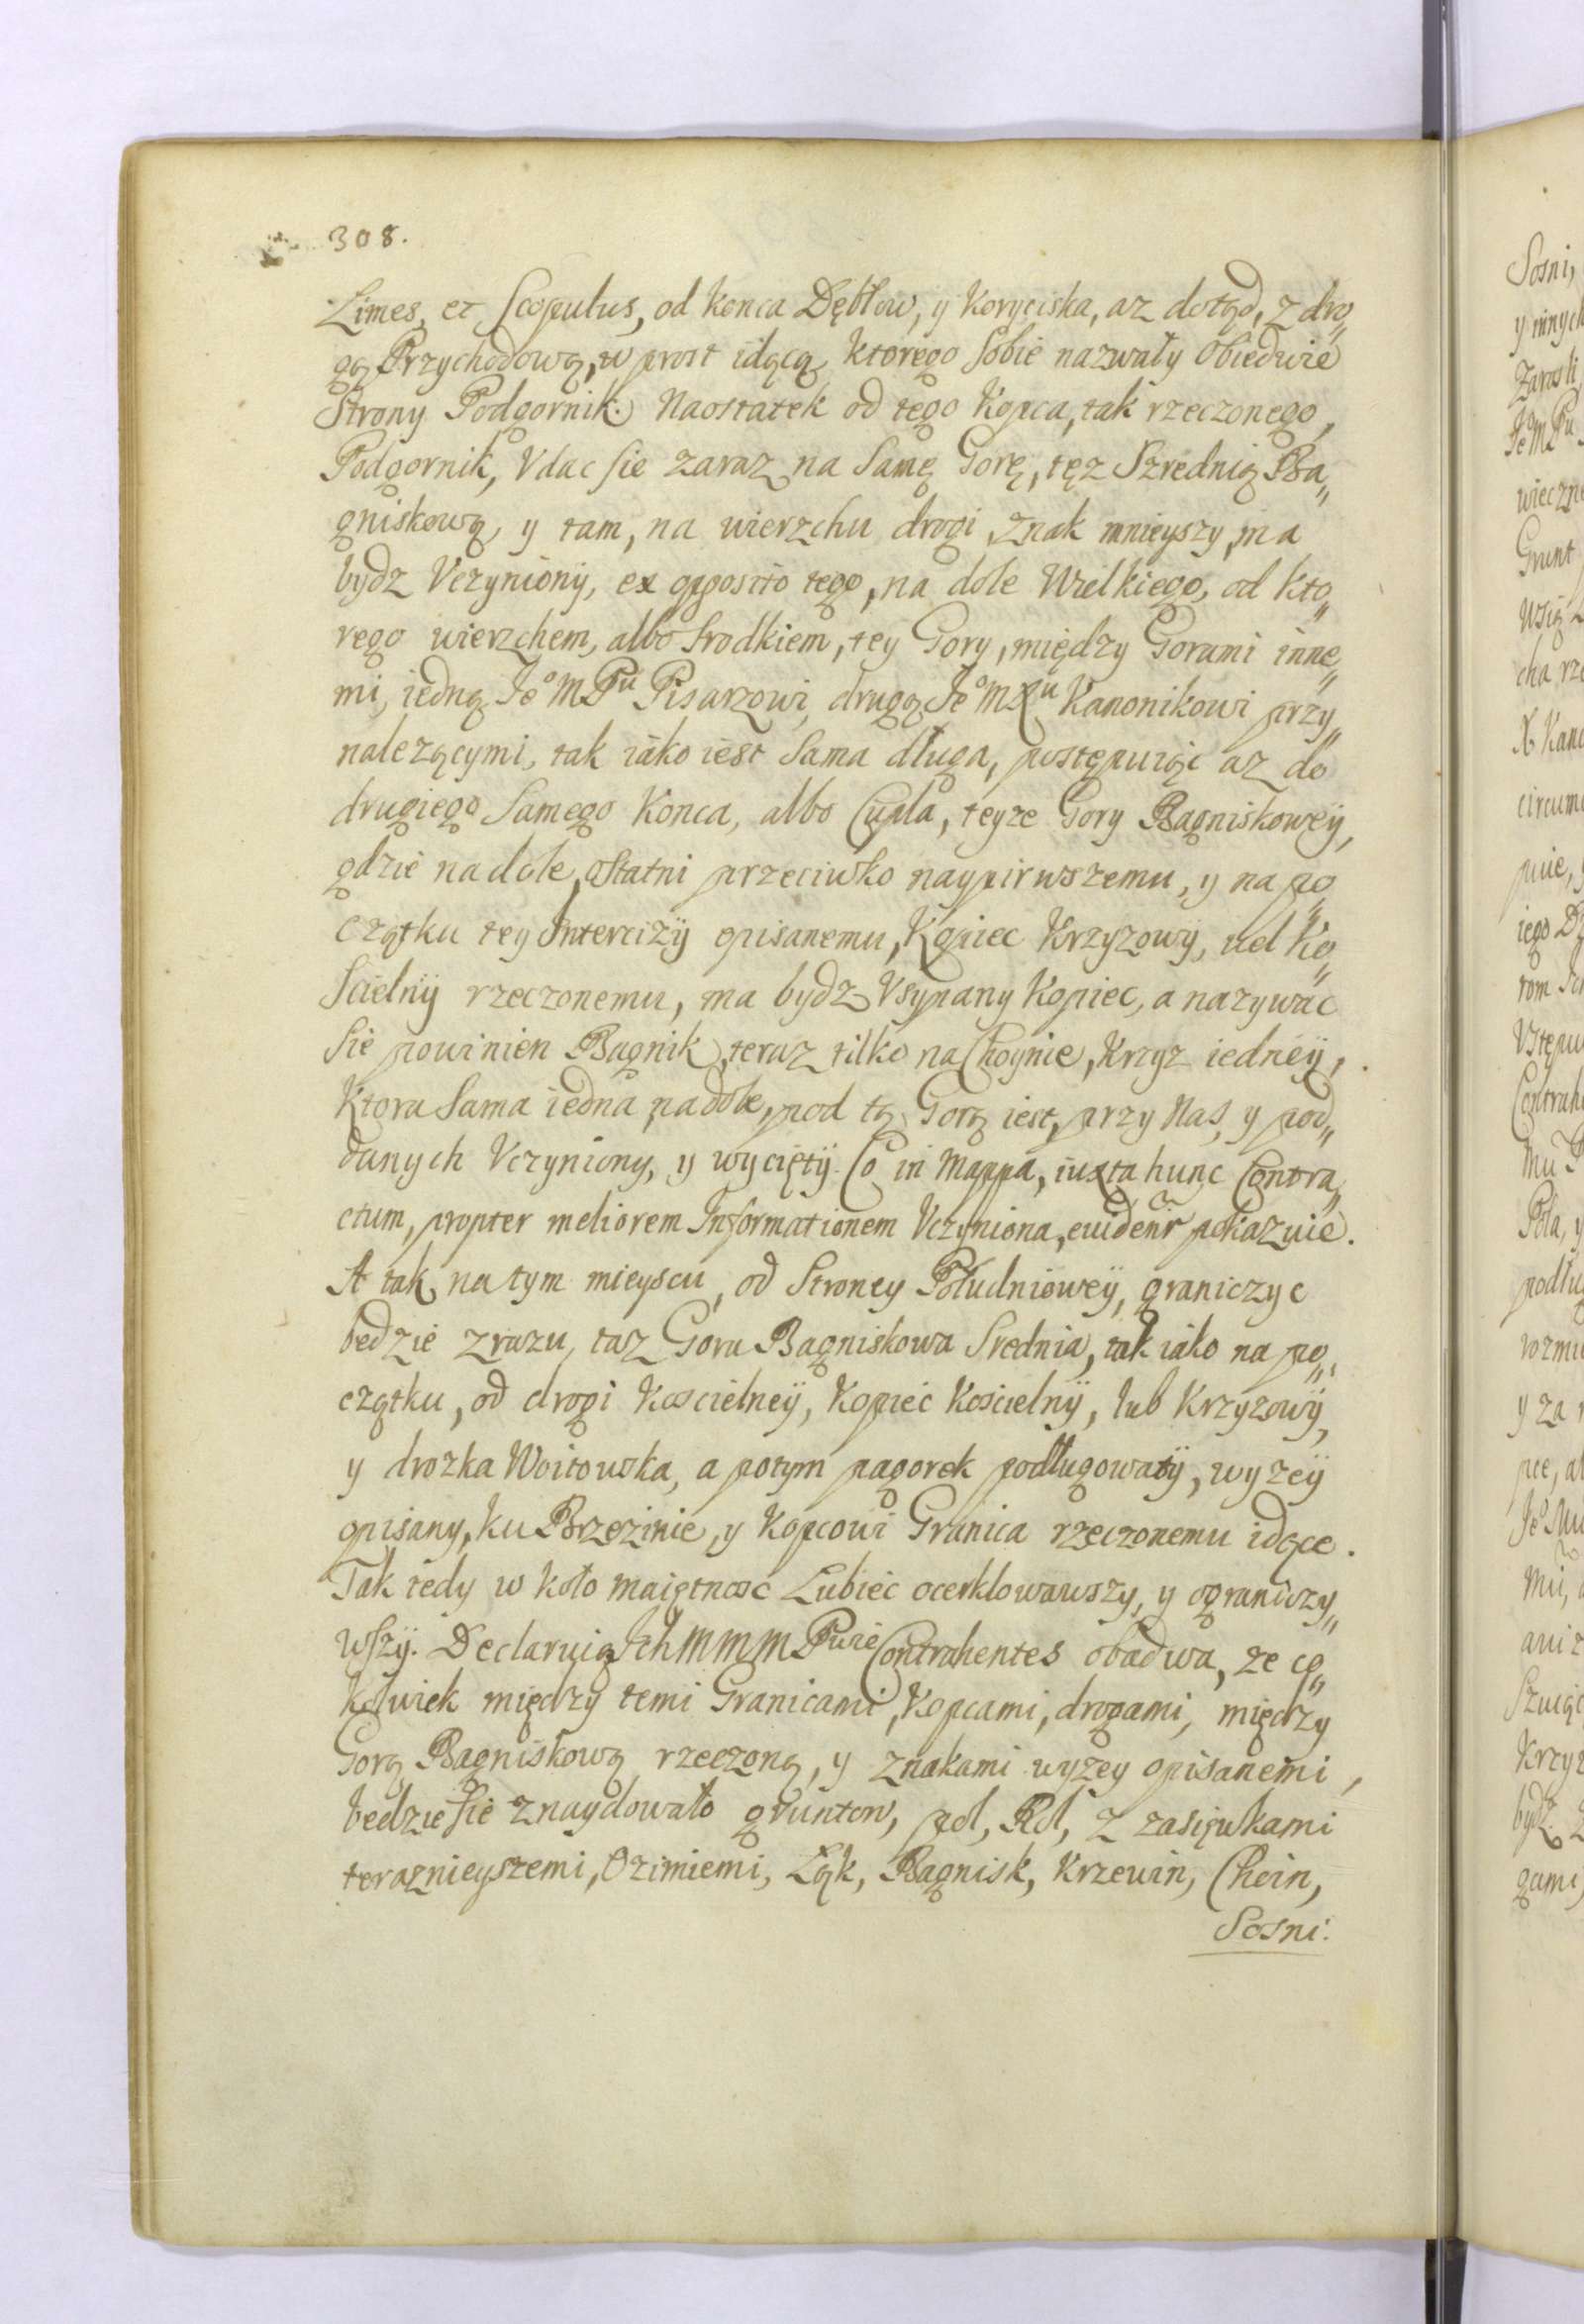 308.
Limes, et Scopulus, od konca Dębłow, y Koryciska, az dotąd, z dro„
gą Przychodową, w prost idącą, ktorego sobie nazwały obiedwie
Strony Podgornik. Naostatek od tego Kopca, tak rzeczonego,
Podgornik, Vdac sie zaraz na samę Gorę, tęz Szrednią Ba„
gniskową, y tam, na wierzchu drogi, znak mnieyszy, ma
bydz Vczyniony, ex opposito tego, na dole Wielkiego, od kto„
rego wierzchem, albo srodkiem, tey Gory, między Gorami inne„
mi, iedną Jeº M Pu Pisarzowi, drugą Jeº M Xu Kanonikowi przy„
nalezącymi, tak iako iest sama długa, postępuiąc az do
drugiego samego konca, albo Cypla, teyze Gory Bagniskoweÿ,
gdzie na dole, ostatni przeciwko naypirwszemu, y na po„
czątku tey Intercizÿ opisanemu, Kopiec Krzyzowy, vel Ko„
scielnÿ rzeczonemu, ma bydz Vsypany Kopiec, a nazywac
sie powinien Bagnik, teraz tilko na Choynie, krzyz iedneÿ,
Ktora sama iedna na dole, pod tą Gorą iest, przy Nas, y pod„
danych Vczyniony, y wyciętÿ. Co in Mappa, iuxta hunc Contra„
ctum, propter meliorem Informationem Vczyniona, evidentr pokazuie.
A tak na tym mieyscu, od Stroney Południoweÿ, graniczyc
bedzie zrazu, taz Gora Bagniskowa Srednia, tak iako na po„
czątku, od drogi Koscielneÿ, Kopiec Koscielnÿ, lub Krzyzowÿ,
y drozka Woitowska, a potym pagorek podługowatÿ, wyzeÿ
opisany, ku Brzezinie, y Kopcowi Granica rzeczonemu idące.
Tak tedy w koło maiętnosc Lubiec ocerklowawszy, y ograniczy„
wszÿ. Declaruią Ich M M M Pwie Contrahentes obadwa, ze co„
kolwiek między temi Granicami, Kopcami, drogami, między
Gorą Bagniskową rzeczoną, y znakami wyzey opisanemi,
bedzie sie znaydowało gruntow, pol, Rol, z zasiewkami
teraznieyszemi, Ozimiemi, Ląk, Bagnisk, Krzewin, Choin,
Sosni:
Sosni,
y innych
Jeº M Pu
wieczne
Grunt
cha rze
X Kano
circum
Contrah
Pola, y
podłu
rozmi
y za
Krzyz
bydz
gami,